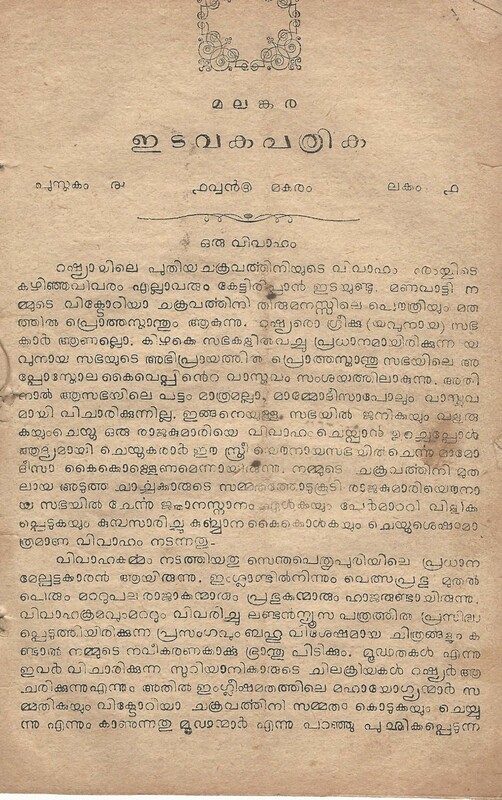 മലങ്കര
ഇടവകപത്രിക
പുസ്തകം ൪ മകരം ലക്കം ൧
ഒരു വിവാഹം
റഷ്യായിലെ പുതിയ ചക്രവൎത്തിനിയുടെ വിവാഹം ഈയ്യിടെ
കഴിഞ്ഞവിവരം എല്ലാവരും കേട്ടിരിപ്പാൻ ഇടയുണ്ടു. മണവാട്ടി ന
മ്മുടെ വിക്ടോറിയാ ചക്രവൎത്തിനി തിരുമനസ്സിലെ പൌത്രിയും മത
ത്തിൽ പ്രൊത്തസ്താന്തും ആകുന്നു. റഷ്യരൊ ഗ്രീക്കു (യവുനായ) സഭ
കാർ ആണല്ലൊ. കിഴക്കെ സഭകളിൽവച്ചു പ്രധാനമായിരിക്കുന്ന യ
വുനായ സഭയുടെ അഭിപ്രായത്തിൽ പ്രൊത്തസ്താന്തു സഭയിലെ അ
പ്പോസ്തോല കൈവെപ്പിൻറെ വാസ്തവം സംശയത്തിലാകുന്നു. അതി
നാൽ ആസഭയിലെ പട്ടം മാത്രമല്ലാ, മാമ്മോദീസാപോലും വാസ്തവ
മായി വിചാരിക്കുന്നില്ല. ഇങ്ങനെയുള്ള സഭയിൽ ജനിക്കയും വളരു
കയുംചെയ്ത ഒരു രാജകുമാരിയെ വിവാഹം ചെയ്യാൻ ഉറച്ചപ്പോൾ
ആദ്യമായി ചെയ്തുകരാർ ഈ സ്ത്രീ യൌനായസഭയിൽ ചെൎന്നു മാമോ
ദീസാ കൈക്കൊള്ളെണമെന്നായിരുന്നു. നമ്മുടെ ചക്രവൎത്തിനി മുത
ലായ അടുത്ത ചാൎച്ചക്കാരുടെ സമ്മതത്തോടുകൂടി രാജകുമാരിയൌനാ
യ സഭയിൽ ചേൎന്നു ജ്ഞാനസ്നാനം ഏൾക്കയും പേർമാററി വിളിക്ക
പ്പെടുകയും കുമ്പസാരിച്ചു കുൎബ്ബാന കൈക്കൊൾകയും ചെയ്തശെഷംമാ
ത്രമാണ വിവാഹം നടന്നതു-
വിവാഹകൎമ്മം നടത്തിയതു സെന്തപെതൃപുരിയിലെ പ്രധാന
മേല്പട്ടക്കാരൻ ആയിരുന്നു. ഇംഗ്ലാണ്ടിൽനിന്നും വെത്സപ്രഭു മുതൽ
പെരും മററുപല രാജാക്കന്മാരും പ്രഭുക്കന്മാരും ഹാജരുണ്ടായിരുന്നു.
വിവാഹക്രമവുംമററും വിവരിച്ചു ലണ്ടൻന്യൂസ പത്രത്തിൽ പ്രസിദ്ധ
പ്പെടുത്തിയിരിക്കുന്ന പ്രസംഗവും ബഹു വിശേഷമായ ചിത്രങ്ങളും ക
ണ്ടാൽ നമ്മുടെ നവീകരണകാൎക്കു ഭ്രാന്തു പിടിക്കും. മൂഢതകൾ എന്നു
ഇവർ വിചാരിക്കുന്ന സുറിയാനികാരുടെ ചിലക്രിയകൾ റഷ്യർ ആ
ചരിക്കുന്നുഎന്നും അതിൽ ഇംഗ്ലീഷമതത്തിലെ മഹായോഗ്യന്മാർ സ
മ്മതിക്കയും വിക്ടോറിയാ ചക്രവൎത്തിനി സമ്മതം കൊടുക്കയും ചെയ്യു
ന്നു എന്നും കാണുന്നതു മൂഢന്മാർ എന്നു പറഞ്ഞു പുച്ഛിക്കപ്പെടുന്ന